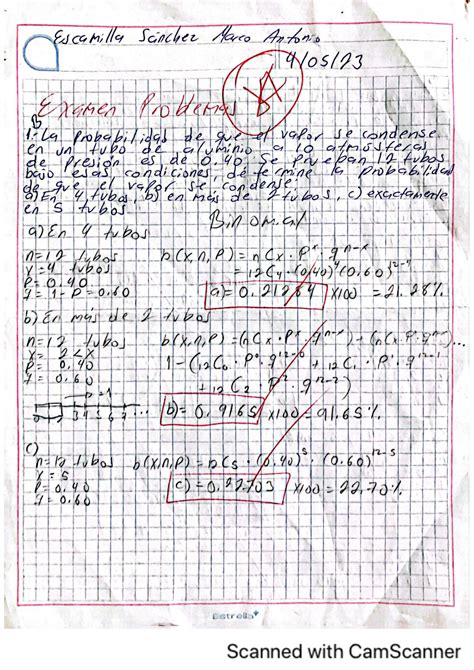 Escamilla Sánchez Marco Antonio
9/05/23
Examen Problemas
1.- La probabilidad de que el vapor se condense
en un tubo de aluminio a 10 atmósferas
de presión es de 0.40. Se prueban 12 tubos
bajo esas condiciones, determine la probabilidad
de que el vapor se condense:
a) En 4 tubos, b) en más de 2 tubos, c) exactamente
en 5 tubos.
Binomial
a) En 4 tubos
n=12 tubos b(x,n,p) = nCx · P^x · q^n-x
x=4 tubos = 12C4 · (0.40)^4 (0.60)^12-4
P=0.40
q=1-P=0.60 a)= 0.21284 x100 = 21.28%
b) En más de 2 tubos
n=12 tubos b(x,n,P) = (nCx · P^x · q^n-x) + (nCx · P^x · q^n-x)...
x= 2<x 1-(12C0 · P^0 · q^12-0 + 12C1 · P^1 · q^12-1
P= 0.40 + 12C2 · P^2 · q^12-2)
q= 0.60
b)= 0.9165 x100 = 91.65%
c)
n=12 tubos b(x,n,P) = 12C5 · (0.40)^5 · (0.60)^12-5
x=5
P=0.40 c)= 0.22703 x100 = 22.70%
q=0.60
Estrella
Scanned with CamScanner